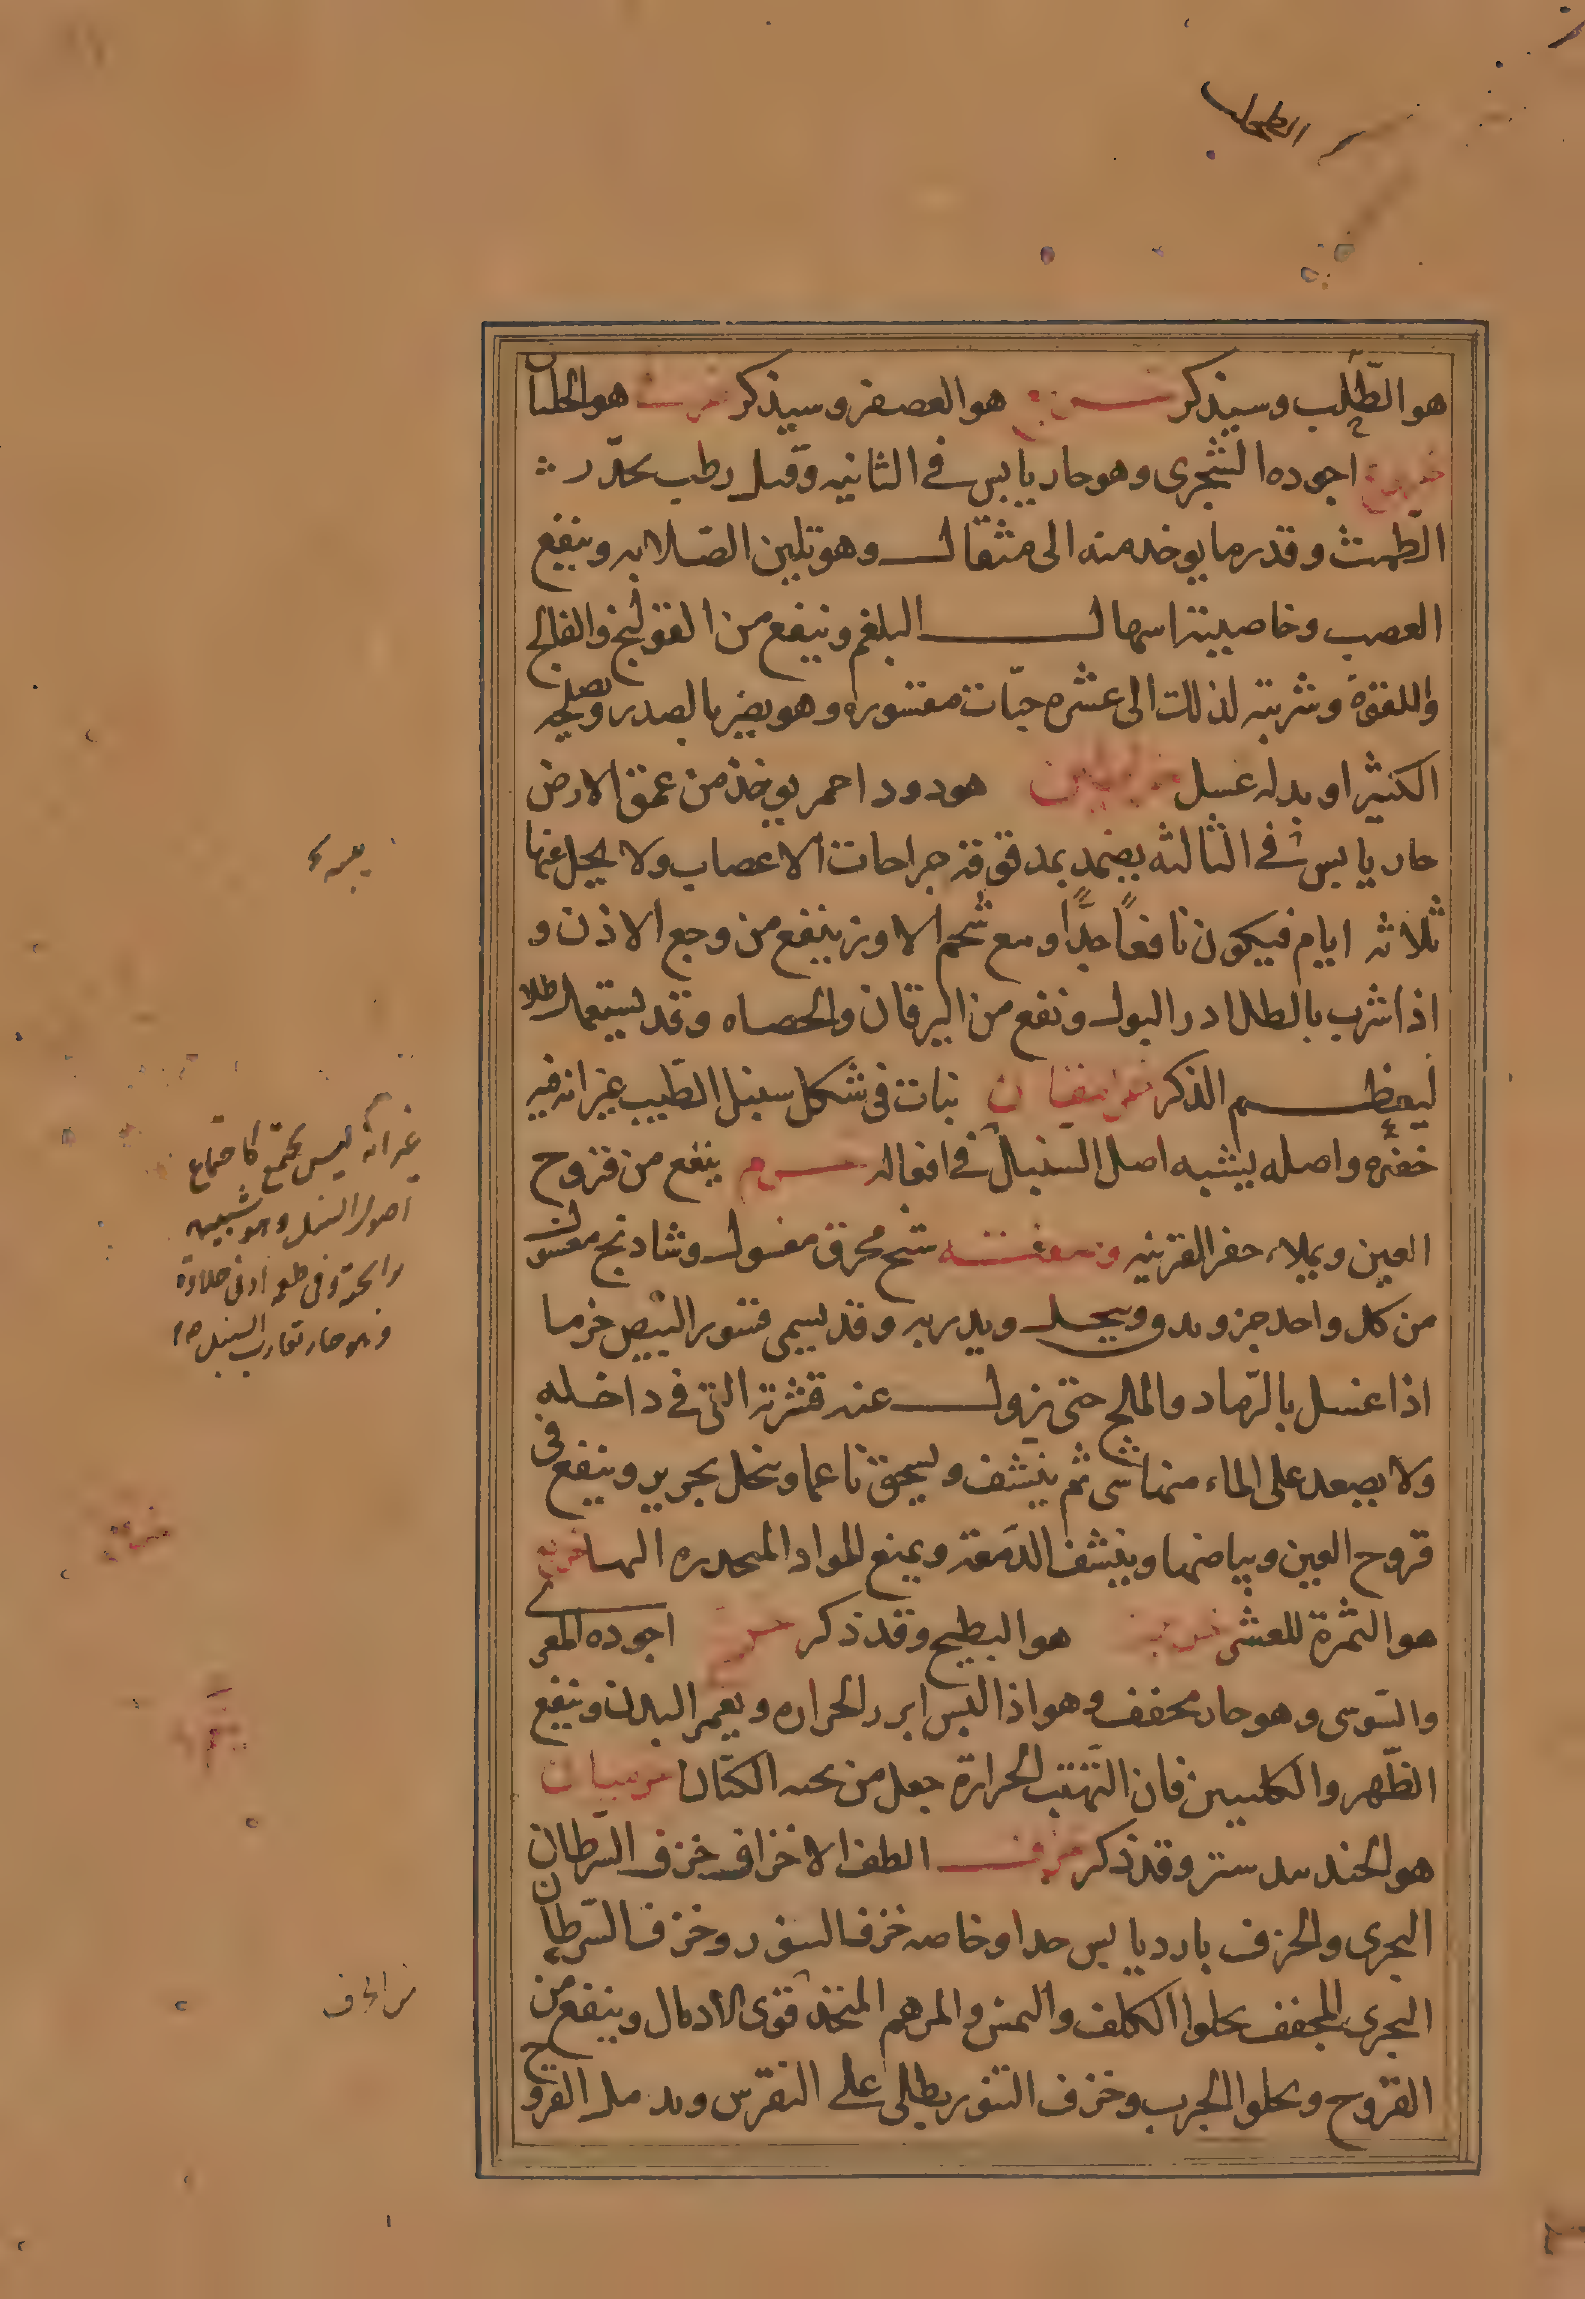 الطحلب
هو الطحلب وسيذكر هو العصفر وسيذكر هو الجلبان
خروع اجوده الشجرى وهو حار يابس فى الثانيه وقيل رطب يحدر
الطمث وقدر ما يوخد منه الى مثقال وهو يلين الصلابه وينفع
العصب وخاصيته اسهال البلغم وينفع من القولنج والفالج
واللقوة وشربته لذلك الى عشره حبات مقشوره وهو يضر بالصدر ويصلحه
الكثيرا وبدله عسل خراطين هو دود احمر يوخذ من عمق الارض
حار يابس فى الثالثه يضمد بمدقوقه جراحات الاعصاب ولا يحل عنها
ثلاثه ايام فيكون نافعا جدا ومع شحم الاوز ينفع من وجع الاذن و
اذا شرب بالطلا ادر البول ونفع من اليرقان والحصاه وقد يستعمل طلا
ليعظم الذكر نبات فى شكل سنبل الطيب غير انه فيه
خفره واصله يشبه اصل السنبل فى افعاله خرم ينفع من قروح
العين ويملاء حفر القرنيه وصفته شيح محرق مغسول وشادنج مغسول
من كل واحد جزو يدق وينخل ويدر به وقد يسمى قشور البيض خرما
اذا غسل بالرماد والملح حتى يزول عنه قشرته التى فى داخله
ولا يصعد على الماء منها شى ثم ينشف ويسحق ناعما وينخل بحرير وينفع فى
قروح العين وبياضها وينشف الدمعة ويمنع المواد المتحدره اليها
هو الثمرة للعشى هو البطيخ وقد ذكر اجوده المعر
والسوسى وهو حار مجفف وهو اذا لبس ابرد الحراره ويعمر البدن وينفع
الظهر والكليتين فان التهبت الحرارة جعل من تحته الكتان
هو الجندبيدستر وقد ذكر خزف الطف الاخزاف خزف السرطان
البحرى والخزف بارد يابس جدا وخاصه خزف التنور وخزف السرطان
البحرى المجفف يجلوا الكلف والنمش والمرهم المتخذ قوى الادمال وينفع من
القروح ويجلوا الجرب وخزف التنور يطلى على النقرس ويدمل القروح
غير انه ليس بمجتمع كاجتماع
اصول السنبل وهو شبيه
رائحة وفى طعمه ادنى حلاوة
وهو حار تقارب السنبل